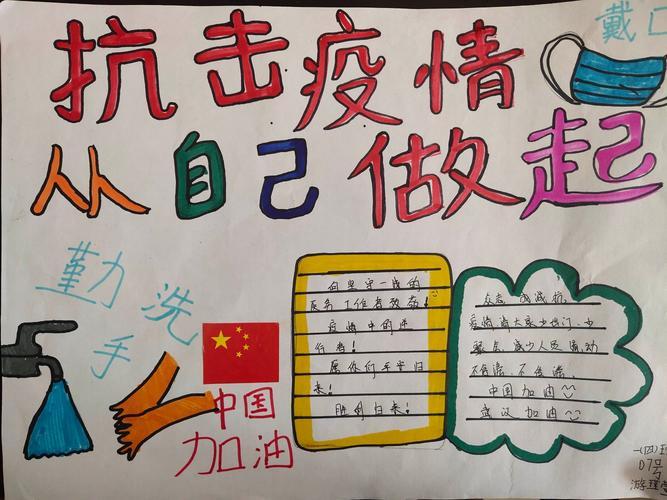 抗击疫情
戴口
从自己做起
勤洗
手
中国
加油
向坚守一线的
医务工作者致敬!
疫情中的逆
行者!
愿你们平安归
来!
胜利归来!
众志成城抗
疫情,请大家少出门,少
聚会,减少人员流动
不信谣,不传谣
中国加油
武汉加油
一(四)班
07号